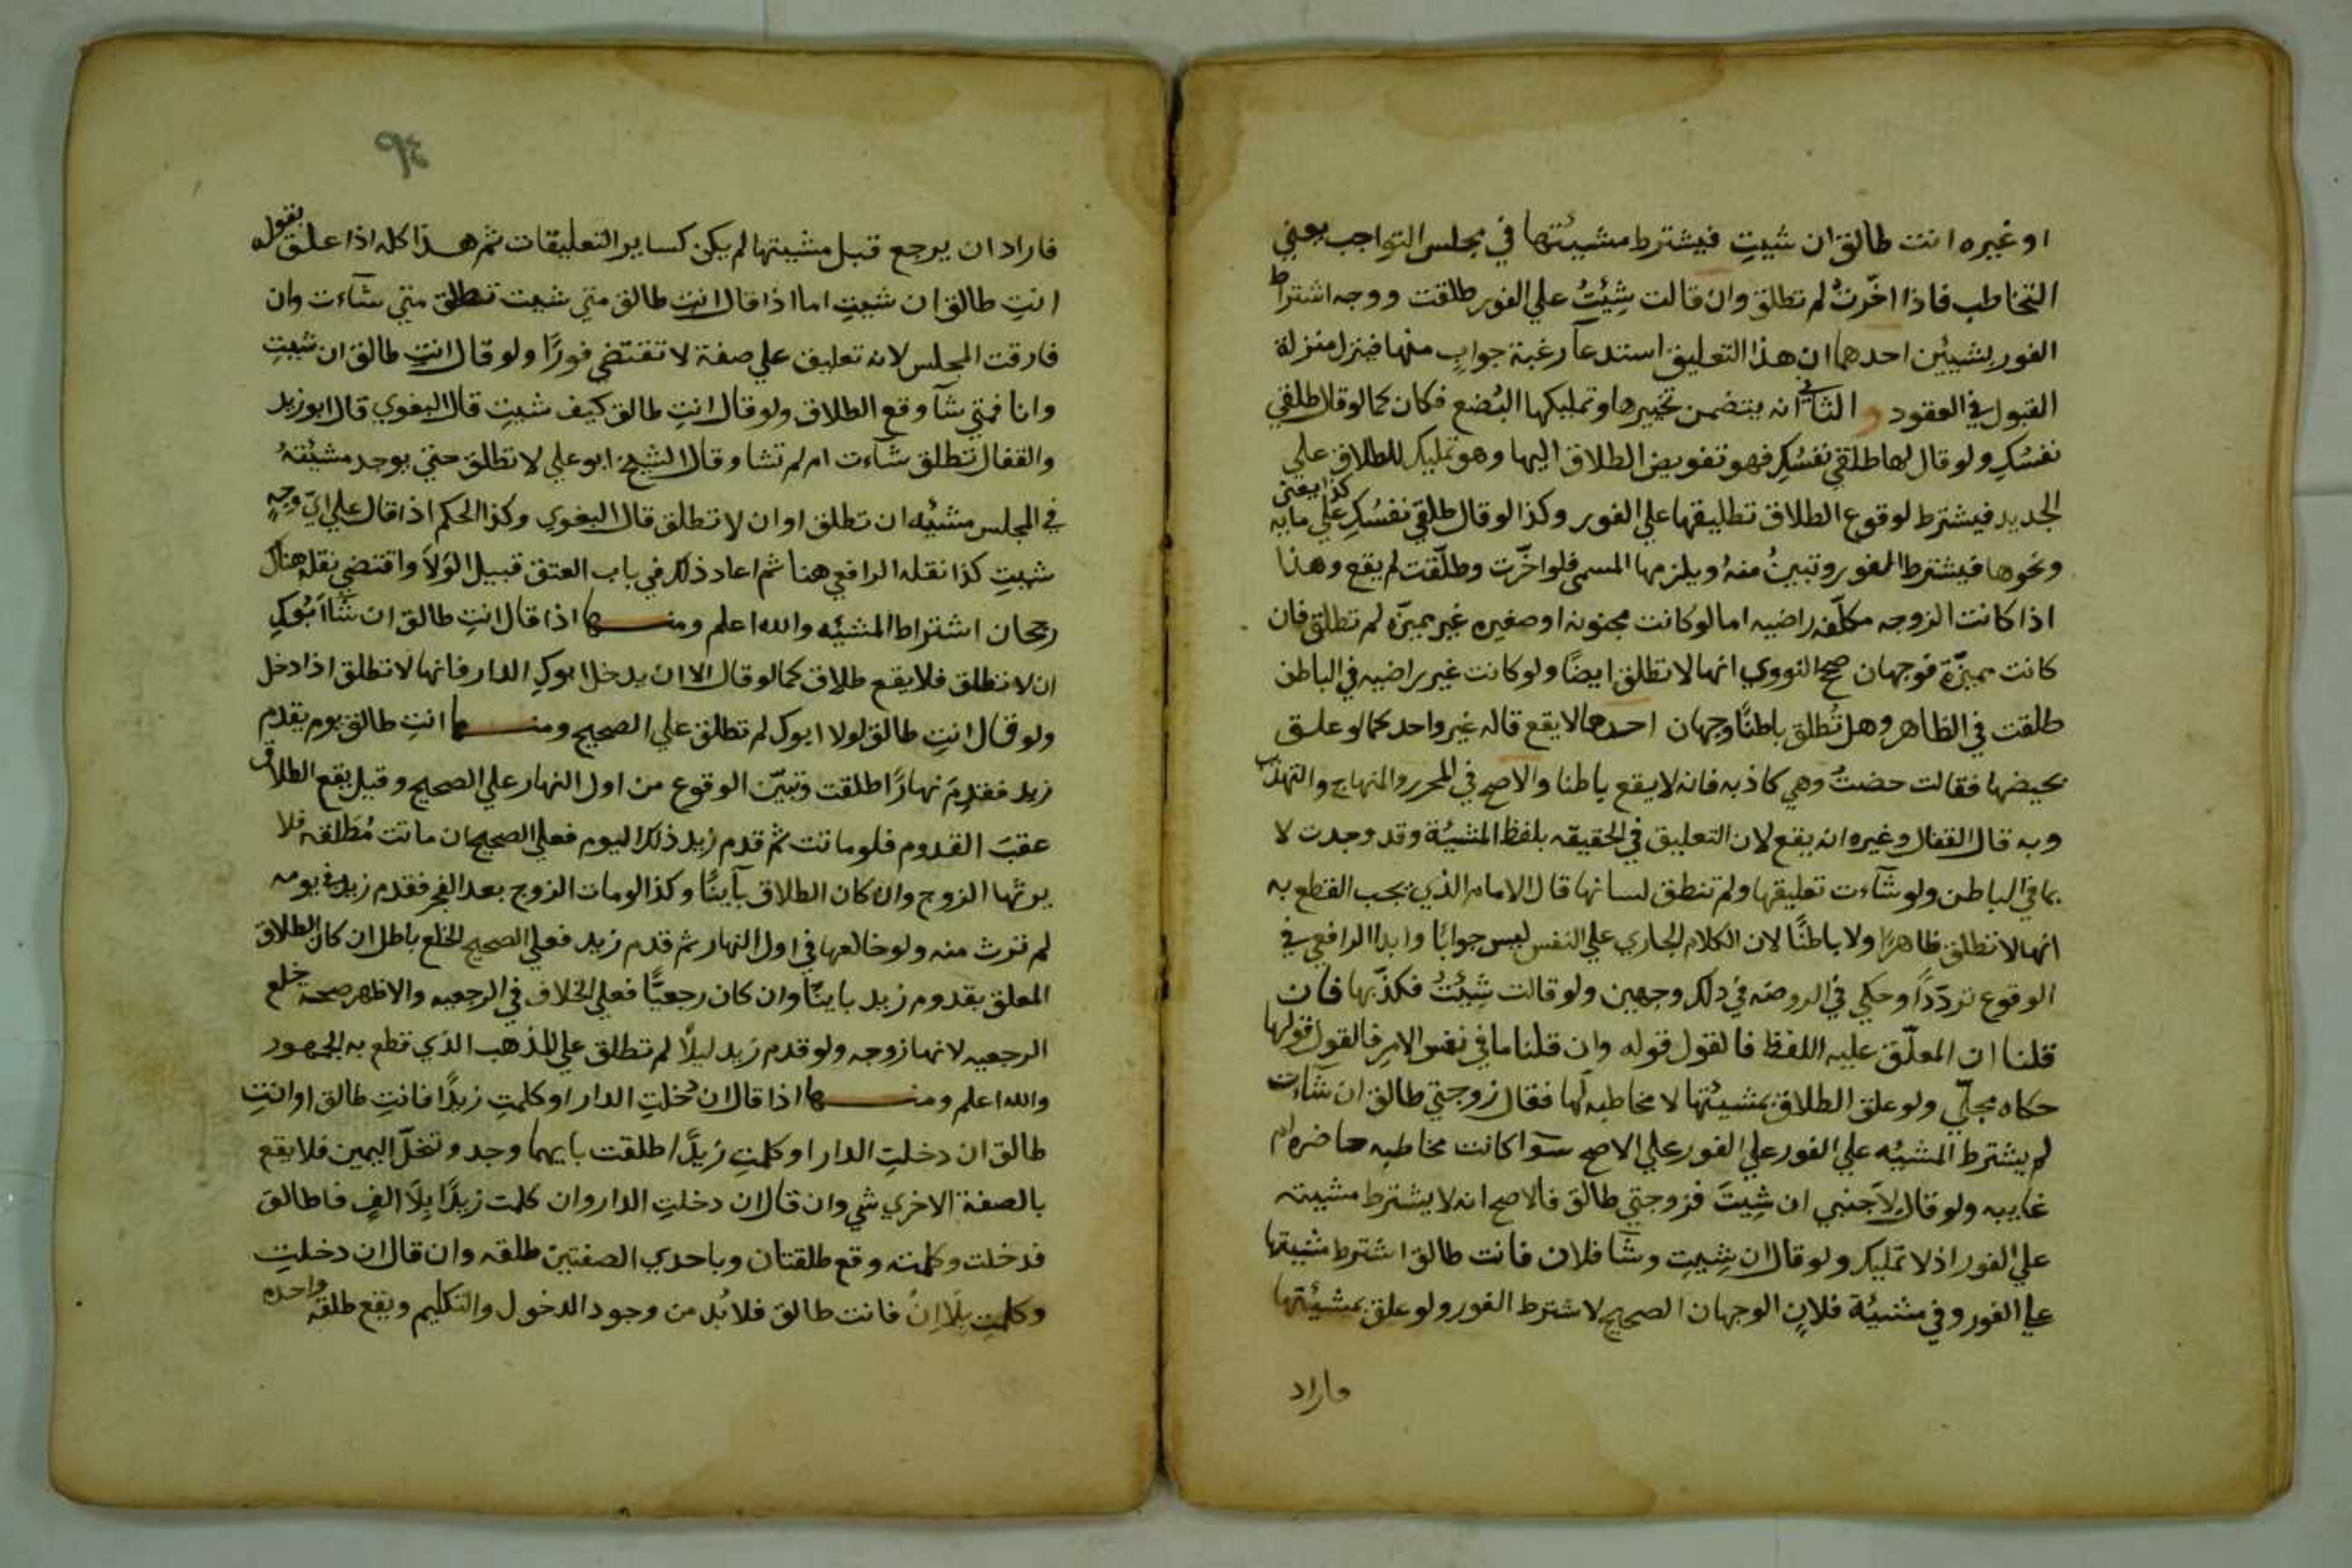 او غيره انت طالق ان شيتِ فيشترط مشيئتها في مجلس التواجب يعني
التخاطب فاذا اخّرتْ لم تطلق وان قالت شِئتُ علي الفور طلقت ووجه اشتراط
الفور بشيئين احدهما ان هذا التعليق استدعآ رغبة جواب منها فينزل منزلة
القبول في العقود و الثاني انه يتضمن تخييرها وتمليكها البُضع فكان كما لو قال طلقي
نفسُكِ ولو قال لها طلقي نفسُكِ فهو تفويض الطلاق اليها وهو تمليك للطلاق علي
الجديد فيشترط لوقوع الطلاق تطليقها علي الفور وكذا لو قال طلقي نفسُكِ علي مايه كذا يعني
ونحوها فيشترط الفور وتبينُ منهُ ويلزمها المسمي فلو اخّرت وطلّقت لم يقع وهذا
اذا كانت الزوجه مكلّفه راضيه اما لو كانت مجنونه او صغيره غير مميزّه لم تطلق فان
كانت مميزّة فوجهان صحح النووي انها لا تطلق ايضًا ولو كانت غير راضيه في الباطن
طلقت في الظاهر وهل تُطلق باطنًا وجهان احدهما لا يقع قاله غير واحد كما لو علق
بحيضها فقالت حضتُ وهي كاذبه فانه لا يقع باطنا والاصح في المحرر والمنهاج والتهذيب
وبه قال القفال وغيره انه يقع لان التعليق في الحقيقه بلفظ المشيئة وقد وجدت لا
بما في الباطن ولو شآءت تعليقها ولم تنطق لسانها قال الامام الذي يجب القطع به
انها لا تطلق ظاهرًا ولا باطنًا لان الكلام الجاري علي النفس ليس جوابًا وابدا الرافعي في
الوقوع تردّدًا وحكي في الروضه في ذلك وجهين ولو قالت شِئتُ فكذّبها فان
قلنا ان المعلّق عليه اللفظ فالقول قوله وان قلنا ما في نفس الامر فالقول قولها
حكاه مجلّي ولو علق الطلاق بمشيئتها لا مخاطبه لها فقال زوجتي طالق ان شاءت
لم يشترط المشيه علي الفور علي الفور علي الاصح سوآ كانت مخاطبه حاضره ام
غايبه ولو قال لاَجنبي ان شِيتَ فزوجتي طالق فالاصح انه لا يشترط مشيته
علي الفور اذ لا تمليك ولو قال ان شِييتِ وشآ فلان فانت طالق اشترط مشيتها
علي الفور وفي مشيئة فلانٍ الوجهان الصحيح لا شترط الفور ولو علق بمشيئتها
فاراد
فاراد ان يرجع قبل مشيتها لم يكن كساير التعليقات ثم هذا كله اذا علق بقوله
انتِ طالق ان شيتِ اما اذا قال انتِ طالق متي شيت تطلق متي شآءت وان
فارقت المجلس لانه تعليق علي صفة لا تقتضي فورًا ولو قال انتِ طالق ان شيتِ
وانا فمتي شآ وقع الطلاق ولو قال انتِ طالق كيف شيتِ قال البغوي قال ابو زيد
والقفال تطلق شآءت ام لم تشا وقال الشيخ ابو علي لا تطلق حتي يوجد مشيئةُ
في المجلس مشيّه ان تطلق او ان لا تطلق قال البغوي وكذا الحكم اذا قال علي ايّ وجهٍ
شيتِ كذا نقله الرافعي هنا ثم اعاد ذلك في باب العتق قبيل الوَلاَ واقتضي نقله هناك
رجحان اشتراط المشيّه والله اعلم ومنها اذا قال انتِ طالق ان شآ ابُوكِ
ان لا تطلق فلا يقع طلاق كما لو قال الا ان يدخل ابوكِ الدار فانها لا تطلق اذا دخل
ولو قال انتِ طالق لولا ابوك لم تطلق علي الصحيح ومنها انتِ طالق يوم يقدم
زيد فقدِمَ نهارًا طلقت وتبيّن الوقوع من اول النهار علي الصحيح وقيل يقع الطلاق
عقبَ القدوم فلو ماتت ثم قدم زيد ذلك اليوم فعلي الصحيح ان ماتت مُطَلقه فلا
يرثها الزوج وان كان الطلاق بآينًا وكذا لو مات الزوج بعد الفجر فقدم زيد في يومه
لم ترث منه ولو خالعها في اول النهار ثم قدم زيد فعلي الصحيح الخلع باطل ان كان الطلاق
المعلق بقدوم زيد باينًا وان كان رجعيًّا فعلي الخلاف في الرجعيه والاظهر صحة خلع
الرجعيه لانها زوجه ولو قدم زيد ليلاً لم تطلق علي المذهب الذي قطع به الجمهور
والله اعلم ومنها اذا قال ان دخلتِ الدار او كلمتِ زيدًا فانتِ طالق او انتِ
طالق ان دخلتِ الدار او كلمتِ زيدًا طلقت بايهما وجد وتنحلّ اليمين فلا يقع
بالصفة الاخري شي وان قال ان دخلتِ الدار وان كلمت زيدًا بِلاَ الفٍ فاطالق
فدخلت وكلمته وقع طلقتان وباحدي الصفتين طلقه وان قال ان دخلتِ
وكلمتِ بلاَ انْ فانت طالق فلا بُد من وجود الدخول والتكليم ويقع طلقه واحده